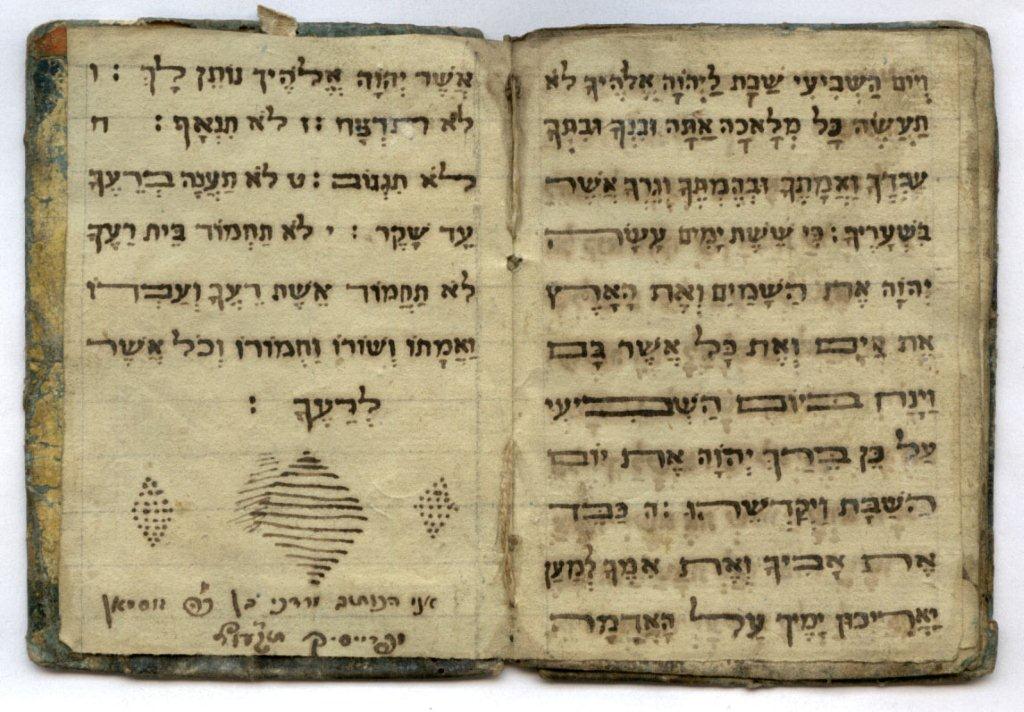 וְיוֹם הַשְׁבִיעִי שַׁבָת לַיְהוָֹה אֱלֹהֶיךָ לֹא
תַעֲשֶׂה כָּל מְלָאכָה אַתָּה וּבִנְךָ וּבִתֶּךָ
עַבְדְךָ וַאֲמָתֶךָ וּבְהֶמְתֶּךָ וְגֵרְךָ אֲשֶׁר
בִּשְׁעָרֶיךָ : כִּי שֵׁשֶׁת יָמִים עָשָׂה
יְהוָֹה אֶת הַשָּׁמַיִם וְאֶת הָאָרֶץ
אֶת הַיָם וְאֶת כָּל אֲשֶׁר בָּם
וַיָנַח בַיוֹם הַשְׁבִיעִי
עַל כֵּן בֵּרַךְ יְהוָֹה אֶת יוֹם
הַשַׁבָּת וַיְקַדְשֵׁהוּ : ה כַּבֵּד
אֶת אָבִיךָ וְאֶת אִמֶךָ לְמַעַן
יַאֲרִיכוּן יָמֶיךָ עַל הָאֲדָמָה
אֲשֶׁר יְהוָֹה אֱלֹהֶיךָ נוֹתֵן לָךְ : ו
לֹא תִרְצָח : ז לֹא תִנְאָף : ח
לֹא תִגְנוֹב : ט לֹא תַעֲנֶה בְרֵעֲךָ
עֵד שָׁקֶר : י לֹא תַחְמוֹד בֵּית רֵעֶךָ
לֹא תַחֲמוֹד אֵשֶׁת רֵעֶךָ וְעַבְדוֹ
וַאֲמָתוֹ וְשׁוֹרוֹ וַחֲמוֹרוֹ וְכֹל אֲשֶׁר
לְרֵעֶךָ :
אני הכותב בן